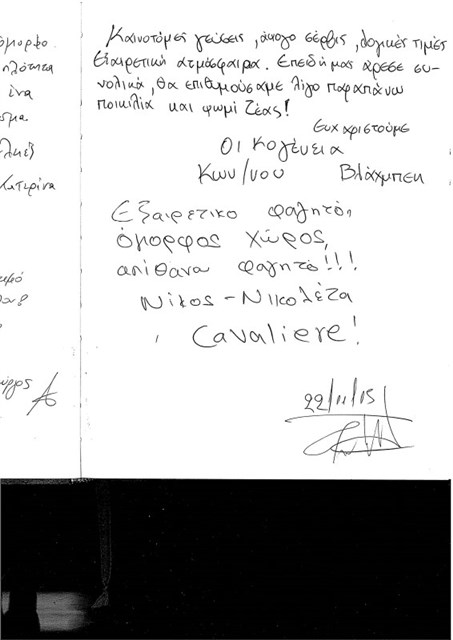 όμορφο
ηλότητα
ίνα
Κατερίνα
Καινοτόμες γεύσεις, άψογο σέρβις, λογικές τιμές
εξαιρετική ατμόσφαιρα. Επεδή μας άρεσε συ-
νολικά, θα επιθυμούσαμε λίγο παραπάνω
ποικιλία και ψωμί ζέας!
Ευχαριστούμε
Οι κογένεια
Κων/νου Βλάχμπεη
Εξαιρετικο φαγητό,
όμορφος χώρος,
απίθανα φαγητό!!!
Νίκος - Νικολέτα
Cavaliere!
22/11/15